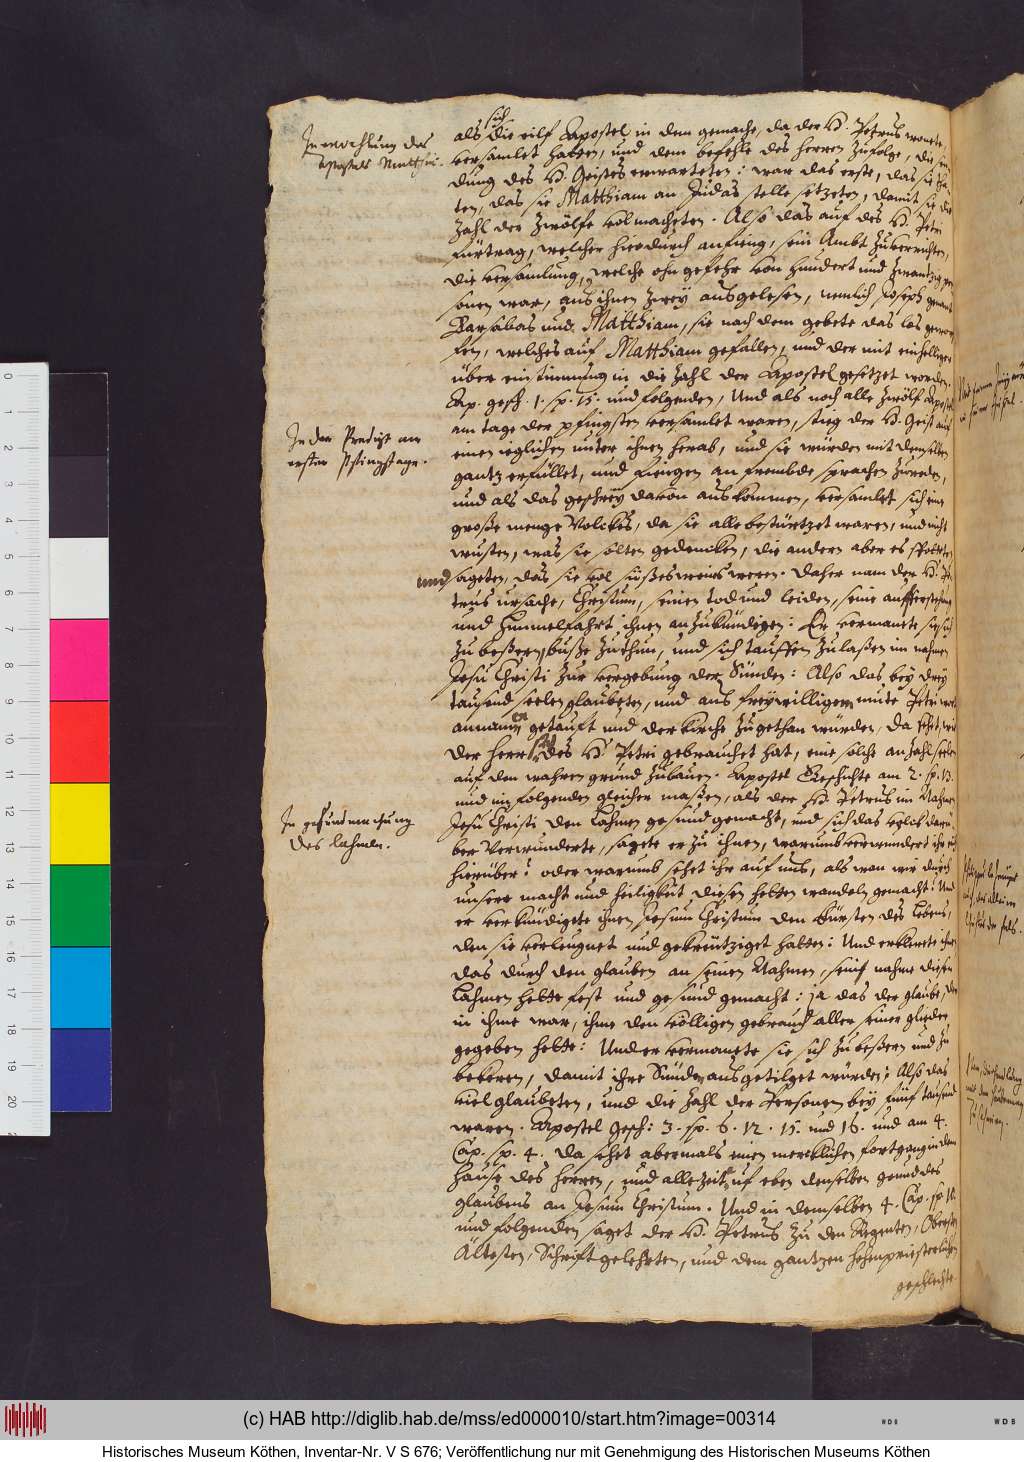 In erwehlung des
Apostels Matthiæ.
sich
als die eilf Apostel in dem gemache, da der H. Petrus wonete,
versamlet hatten, und dem befehle des Herren zufolge, die sen
dung des H. Geistes erwarteten: war das erste, das sie tha
ten, das sie Matthiam an Judas stelle setzeten, damit sie die
Zahl der Zwölfe vol macheten. Also das auf des H. Petri
fürtrag, welcher hierdurch anfieng, sein Ambt zuverrichten,
die versamlung, welche ohn gefehr von hundert und zwantzig per
sonen war, aus ihnen zwey ausgelesen, nemlich Joseph genant
Barsabas und Matthiam, sie nach dem gebete das los gewor
fen, welches auf Matthiam gefallen, und der mit einhelliger
über ein stimmung in die Zahl der Apostel gesetzet worden.
Ap. gesch. 1. sp. 15. und folgenden, Und als noch alle zwölf Apostel
In der Predigt am
ersten Pfingstage.
am tage der pfingsten versamlet waren, stieg der H. Geist auf
einen ieglichen unter ihnen herab, und sie würden mit demselben
gantz erfüllet, und fiengen an frembde sprachen zureden,
und als das geschrey davon aus kommen, versamlet sich eine
große menge Volckes, da sie alle bestürtzet waren, und nicht
wusten, was sie solten gedencken, die andern aber es spotteten
und sageten, das sie vol süßes weins weren. Daher nam der H. Pe
trus ursache, Christum, seinen tod und leiden, seine aufferstehung
und himmelfahrt ihnen anzukündigen: Er vermanete sie sich
zu beßern, buße zuthun, und sich tauffen zulaßen im nahmen
Jesu Christi zur vergebung der Sünden: Also das bey drey
tausend seelen glaubeten, und aus freywilligem mute Petri wort
annamen getauft und der kirche zugethan würden, Da sehet, wie
der Herr des H. Petri gebrauchet hat, eine solche anzahl seelen
auf den wahren grund zubauen. Apostel Geschichte am 2. sp. 13.
und im folgenden gleicher maßen, als der H. Petrus im Nahmen
In gesundmachung
des lahmen.
Jesu Christi den Lahmen gesund gemacht, und sich das volck darü
ber verwunderte, sagete er zu ihnen, warumb verwundert ihr euch
hierüber? oder warumb sehet ihr auf uns, als wan wir durch
unsere macht und heiligkeit diesen hetten wandeln gemacht? Und
er verkündigete ihnen Jesum Christum den Fürsten des Lebens,
den sie verleugnet und gekreutziget hatten: Und erklerete ihnen
das durch den glauben an seinen Nahmen, sein nahme diesen
Lahmen hette fest und gesund gemacht: ja das der glaube, der
in ihme war, ihme den völligen gebrauch aller seiner glieder
gegeben hette: Und er vermanete sie sich zu beßern und zu
bekeren, damit ihre Sünden ausgetilget würden; Also das
viel glaubeten, und die zahl der Personen bey fünf tausend
waren. Apostel Gesch: 3. sp. 6. 12. 15. und 16. und am 4.
Cap. sp. 4. Da sehet abermals einen mercklichen fortgang in dem
Hause des Herren, und alle zeit uf eben denselben grund des
glaubens an Jesum Christum. Und in demselben 4. Cap. sp. 10.
und folgenden saget der H. Petrus zu den Regenten, Obersten
Ältesten, Schrift gelehrten, und dem gantzen hohenpriesterlichen
geschlechte
0 1 2 3 4 5 6 7 8 9 10 11 12 13 14 15 16 17 18 19 20
(c) HAB http://diglib.hab.de/mss/ed000010/start.htm?image=00314
WDB
WDB
Historisches Museum Köthen, Inventar-Nr. V S 676; Veröffentlichung nur mit Genehmigung des Historischen Museums Köthen